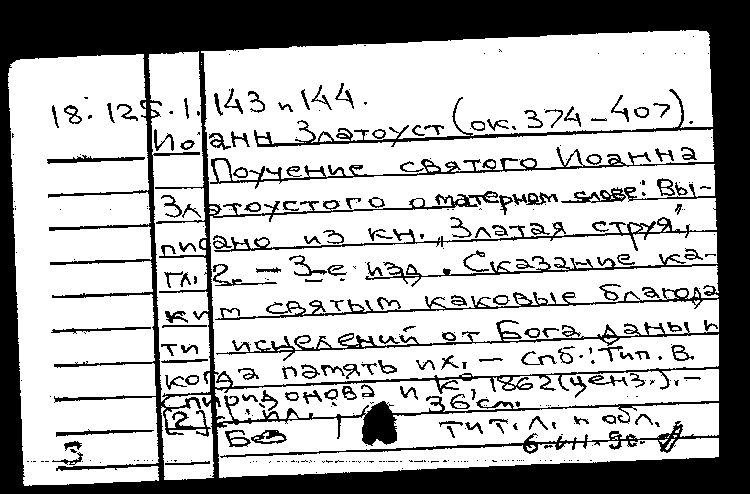 18. 125. 1. 143 и 144.
Иоанн Златоуст (ок. 374-407).
Поучение святого Иоанна
Златоустого о матерном слове: Вы-
писано из кн. „Златая струя",
гл. 2. - 3-е изд. Сказание ка-
ким святым каковые благода
ти исцелений от Бога даны и
когда память их. - Спб.: Тип. В.
Спиридонова и К°, 1862 (ценз.). -
[2] с.: ил. ; 36 см.
Без тит. л. и обл.
3